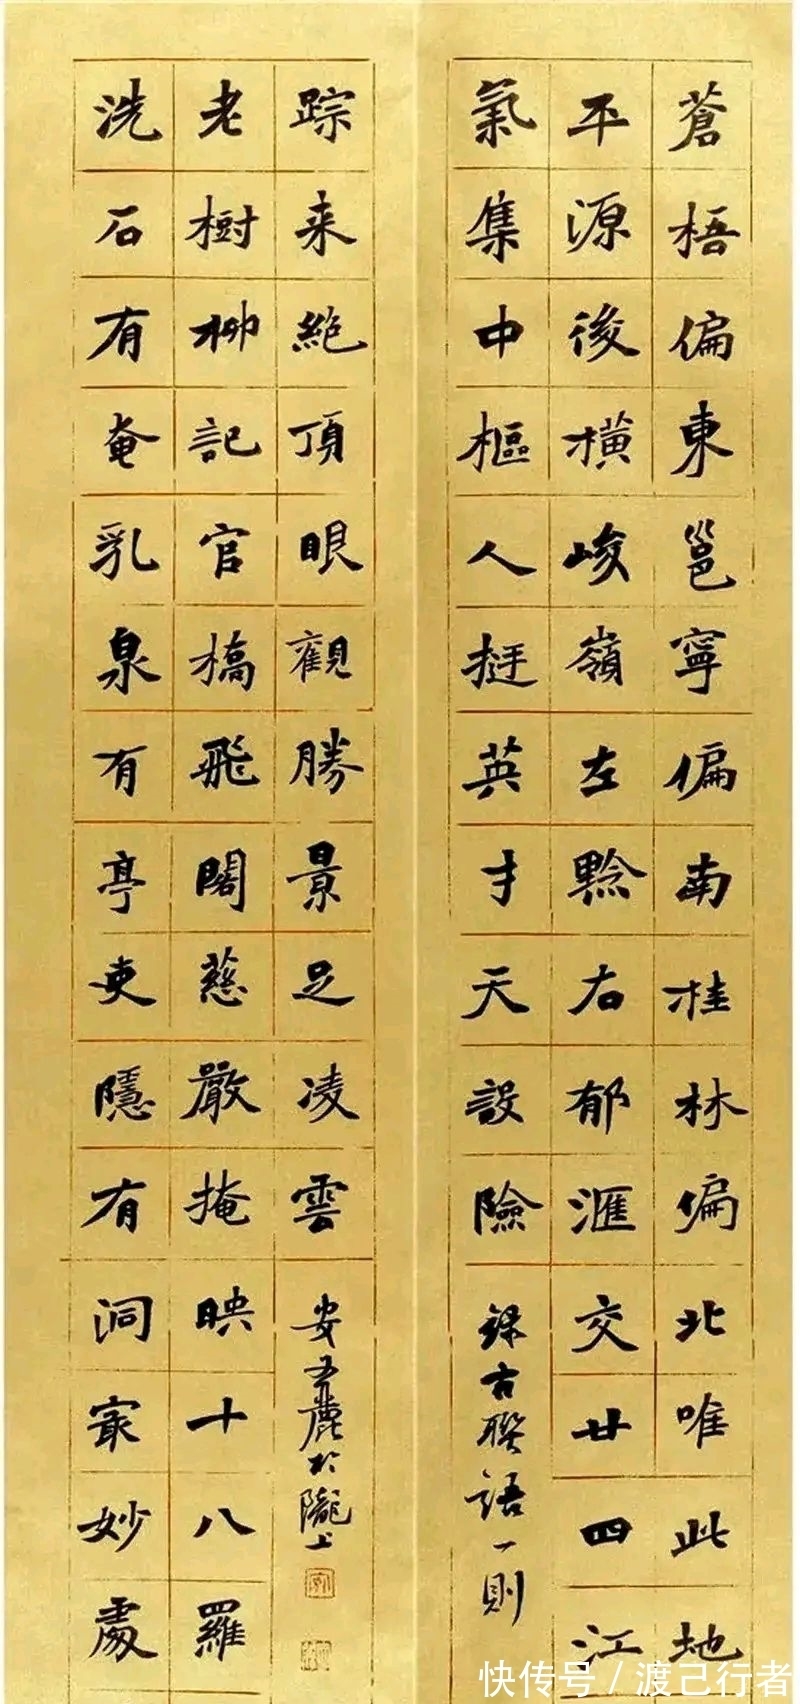 蒼梧偏東邕寧偏南桂林偏北唯此地
平源後橫峻嶺左黔右郁滙交廿四江
氣集中樞人挺英才天設險
錄古聯語一則
洗石有奄乳泉有亭吏隱有洞㝡妙處
老樹柳記官橋飛閣慈嚴掩映十八羅
踪来絶頂眼觀勝景足凌雲
安麓於隴上
快传号/渡己行者